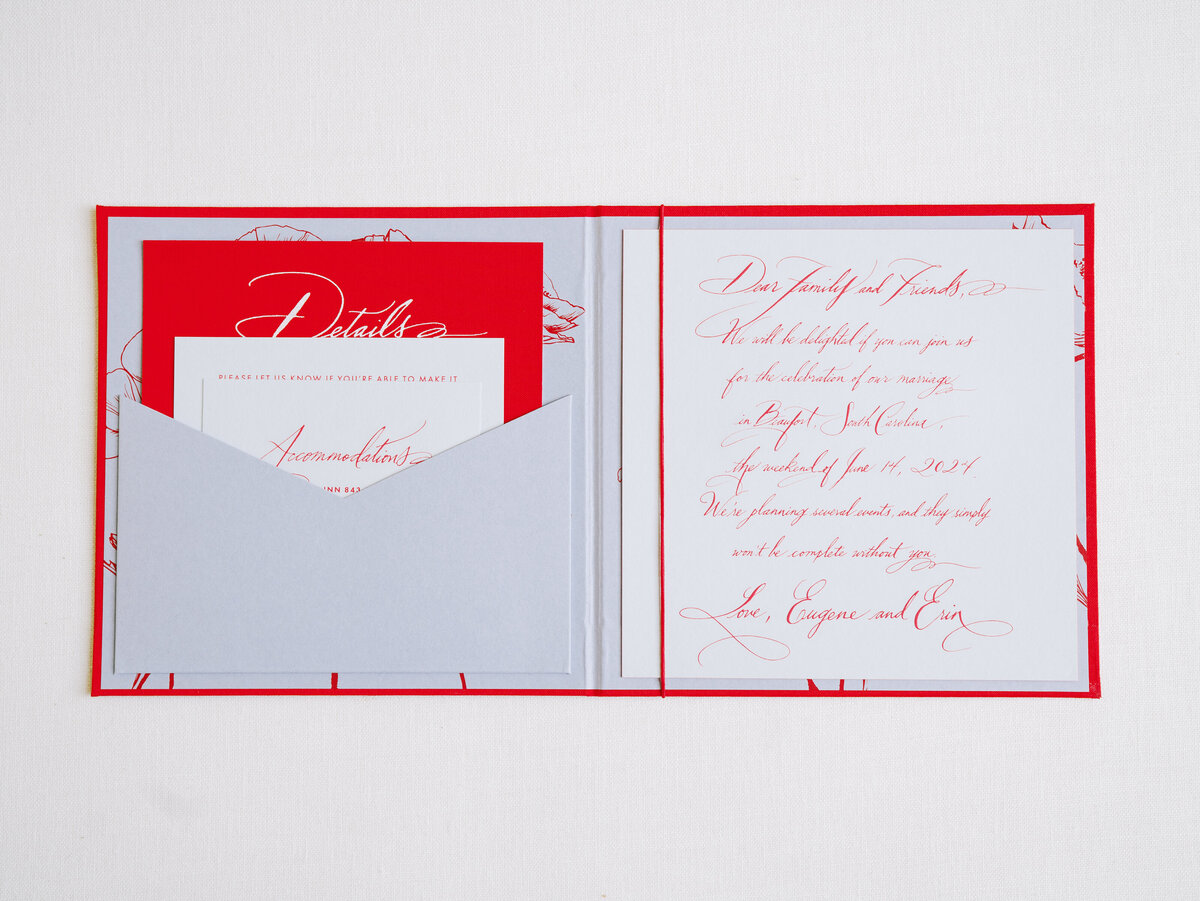 Details
PLEASE LET US KNOW IF YOU'RE ABLE TO MAKE IT
Accommodations
INN 843
Dear Family and Friends,
We will be delighted if you can join us
for the celebration of our marriage
in Beaufort, South Carolina,
the weekend of June 14, 2024.
We're planning several events, and they simply
won't be complete without you.
Love, Eugene and Erin